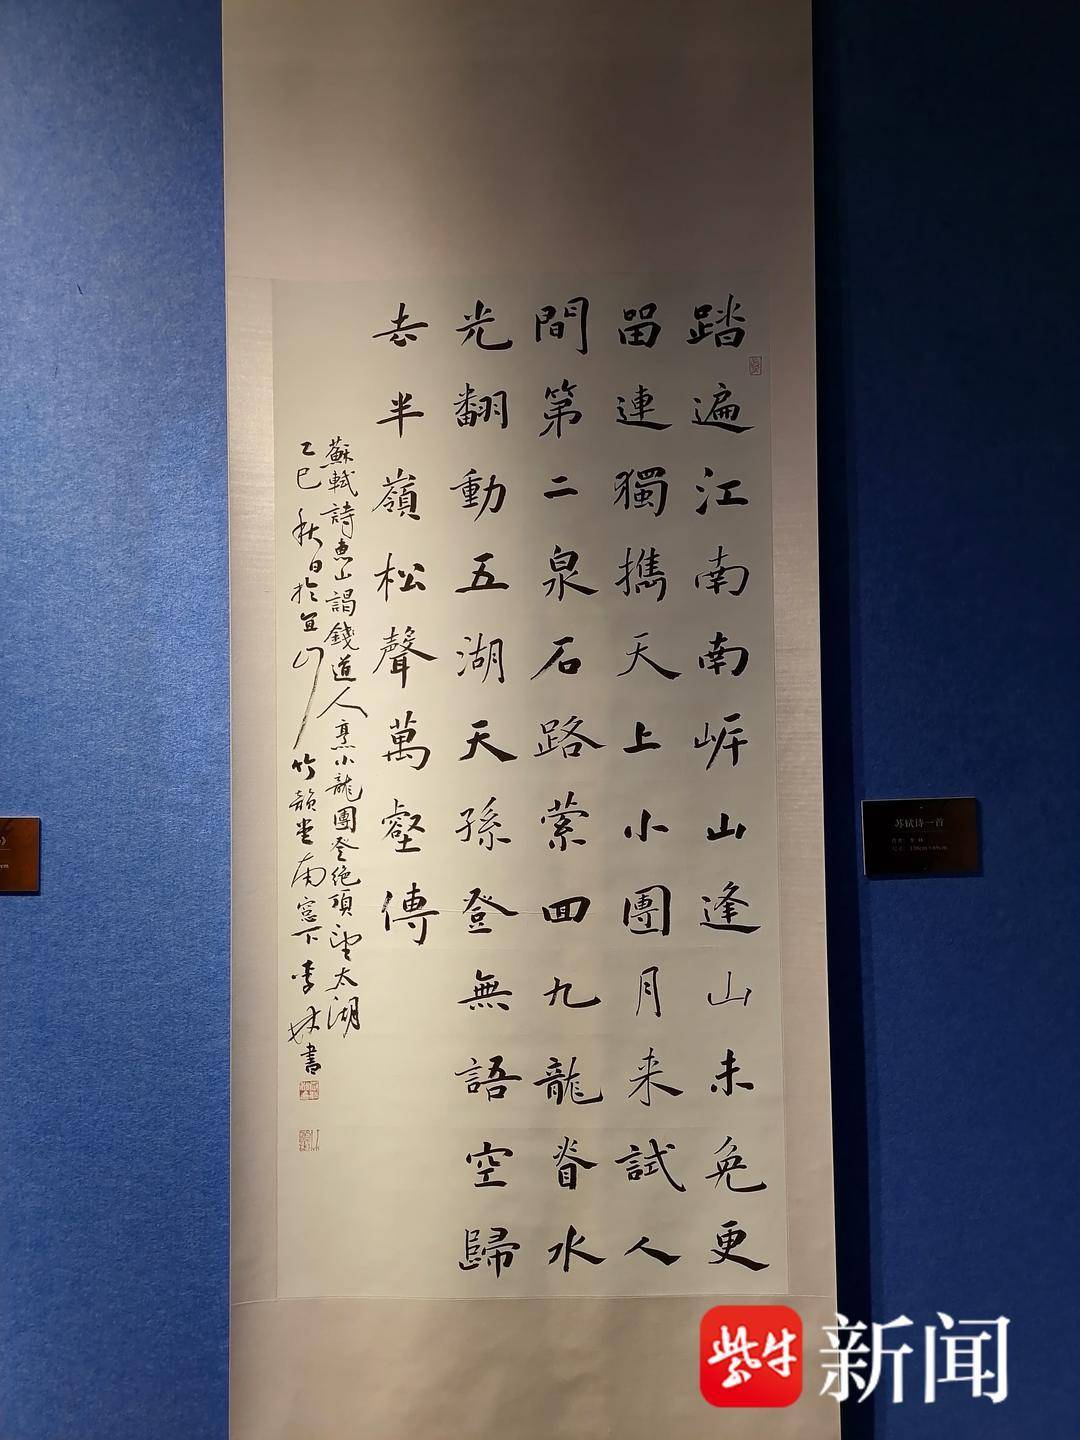 踏遍江南南岸山逢山未免更
留連獨攜天上小團月来試人
間第二泉石路縈回九龍脊水
光翻動五湖天孫登無語空歸
去半嶺松聲萬壑傳
蘇軾詩惠山謁錢道人烹小龍團登絶頂望太湖
乙巳秋日於宜川竹韻堂南窓下李林書
苏轼诗一首
作者：李林
cm
紫牛新闻